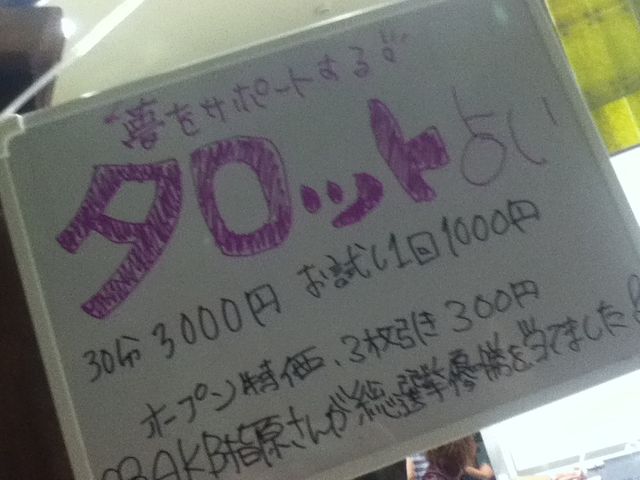 "夢をサポートする"
タロット占い
30分3000円 お試し1回1000円
オープン特価、3枚引き300円
AKB指原さんが総選挙優勝を当てました!